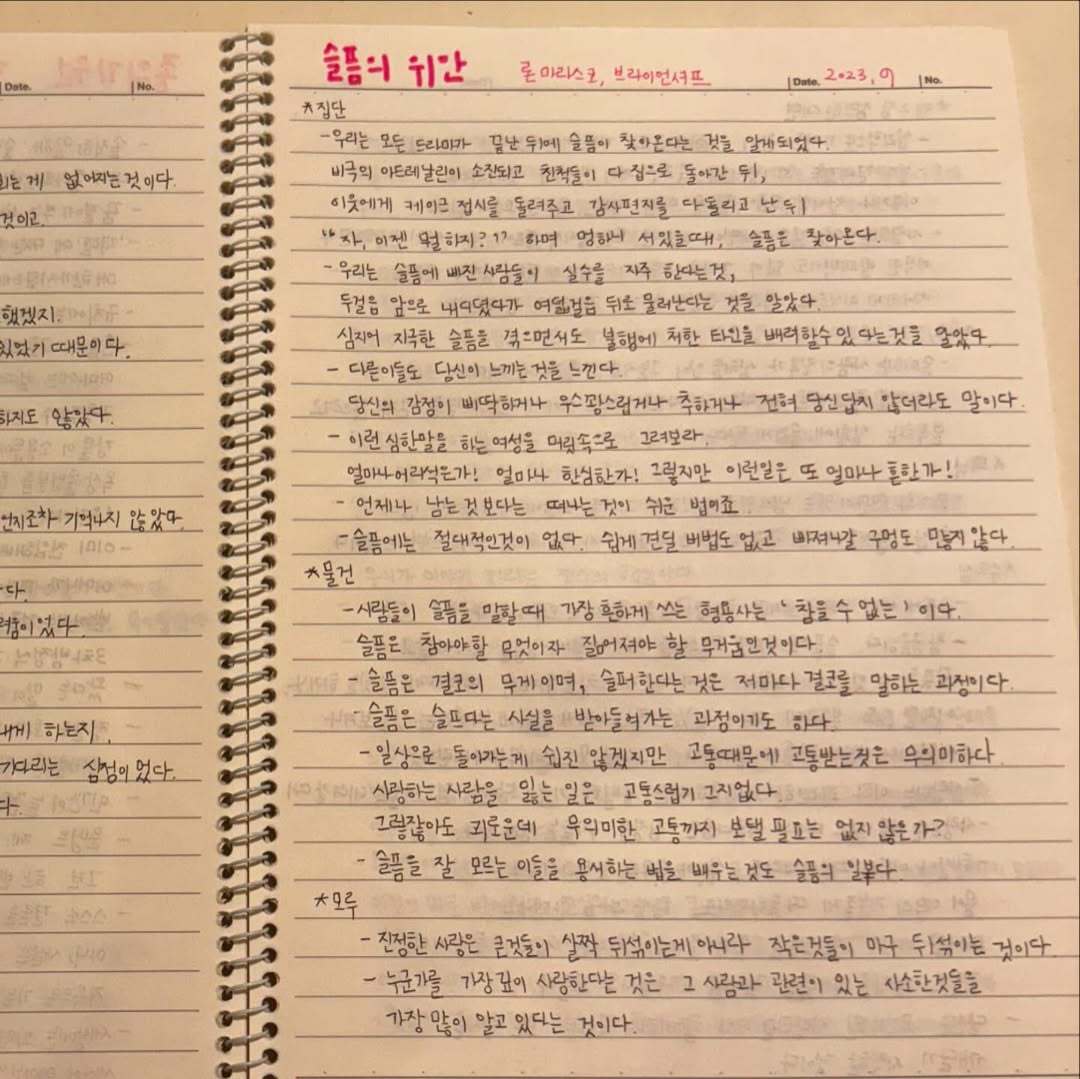 Date.
No.
되는게 없어지는 것이다.
것이고.
했겠지.
있었기 때문이다.
하지도 않았다.
언지조차 기억나지 않았다.
다.
려움이었다.
내게 하는지.
기다리는 심정이었다.
다.
슬픔의 위안
론 마라스코, 브라이언셔프
Date. 2023. 9
No.
*집단
-우리는 모든 드라마가 끝난 뒤에 슬픔이 찾아온다는 것을 알게되었다.
비극의 아드레날린이 소진되고 친척들이 다 집으로 돌아간 뒤,
이웃에게 케이크 접시를 돌려주고 감사편지를 다 돌리고 난 뒤
"자, 이젠 뭘 하지?" 하며 멍하니 서있을때, 슬픔은 찾아온다.
-우리는 슬픔에 빠진 사람들이 실수를 자주 한다는것,
두걸음 앞으로 내디뎠다가 여덟걸음 뒤로 물러난다는 것을 알았다.
심지어 지극한 슬픔을 겪으면서도 불행에 처한 타인을 배려할수 있다는것을 알았다.
- 다른이들도 당신이 느끼는것을 느낀다.
당신의 감정이 삐딱하거나 우스꽝스럽거나 추하거나 전혀 당신답지 않더라도 말이다.
- 이런 심한말을 하는 여성을 머릿속으로 그려보라.
얼마나어리석은가! 얼마나 한심한가! 그렇지만 이런일은 또 얼마나 흔한가!
- 언제나 남는것보다는 떠나는것이 쉬운 법이죠
-슬픔에는 절대적인것이 없다. 쉽게 견딜 비법도 없고 빠져나갈 구멍도 많지 않다.
*물건
-사람들이 슬픔을 말할때 가장 흔하게 쓰는 형용사는 '참을 수 없는' 이다.
슬픔은 참아야할 무엇이자 짊어져야 할 무거움인것이다.
- 슬픔은 결코의 무게이며, 슬퍼한다는 것은 저마다 결코를 말하는 과정이다.
-슬픔은 슬프다는 사실을 받아들여가는 과정이기도 하다.
-일상으로 돌아가는게 쉽진 않겠지만 고통때문에 고통받는것은 무의미하다
사랑하는 사람을 잃는 일은 고통스럽기 그지없다.
그렇잖아도 괴로운데 무의미한 고통까지 보탤 필요는 없지 않은가?
- 슬픔을 잘 모르는 이들을 용서하는 법을 배우는것도 슬픔의 일부다.
*모루
-진정한 사랑은 큰것들이 살짝 뒤섞이는게 아니라 작은것들이 마구 뒤섞이는 것이다.
- 누군가를 가장깊이 사랑한다는 것은 그 사람과 관련이 있는 사소한것들을
가장 많이 알고 있다는 것이다.